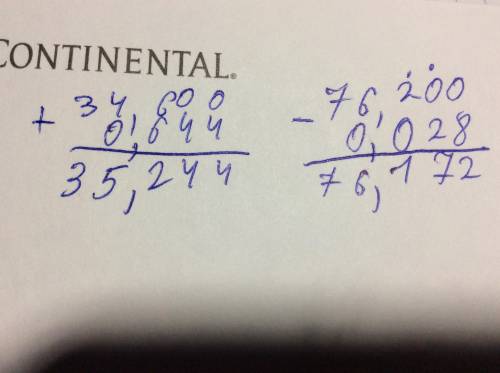 CONTINENTAL.
34,600
+ 0,644
35,244
76,200
- 0,028
76,172